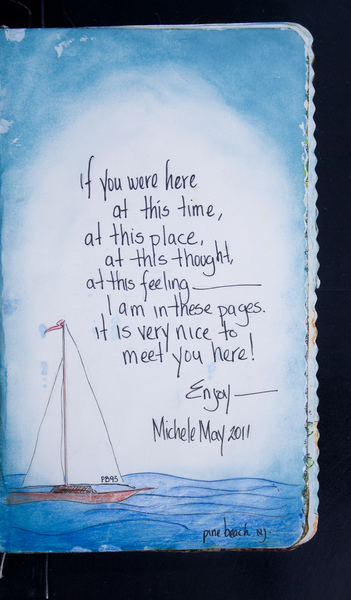 if you were here
at this time,
at this place,
at this thought,
at this feeling —
I am in these pages.
it is very nice to
meet you here!
Enjoy —
Michele May 2011
PB95
pine beach NJ.